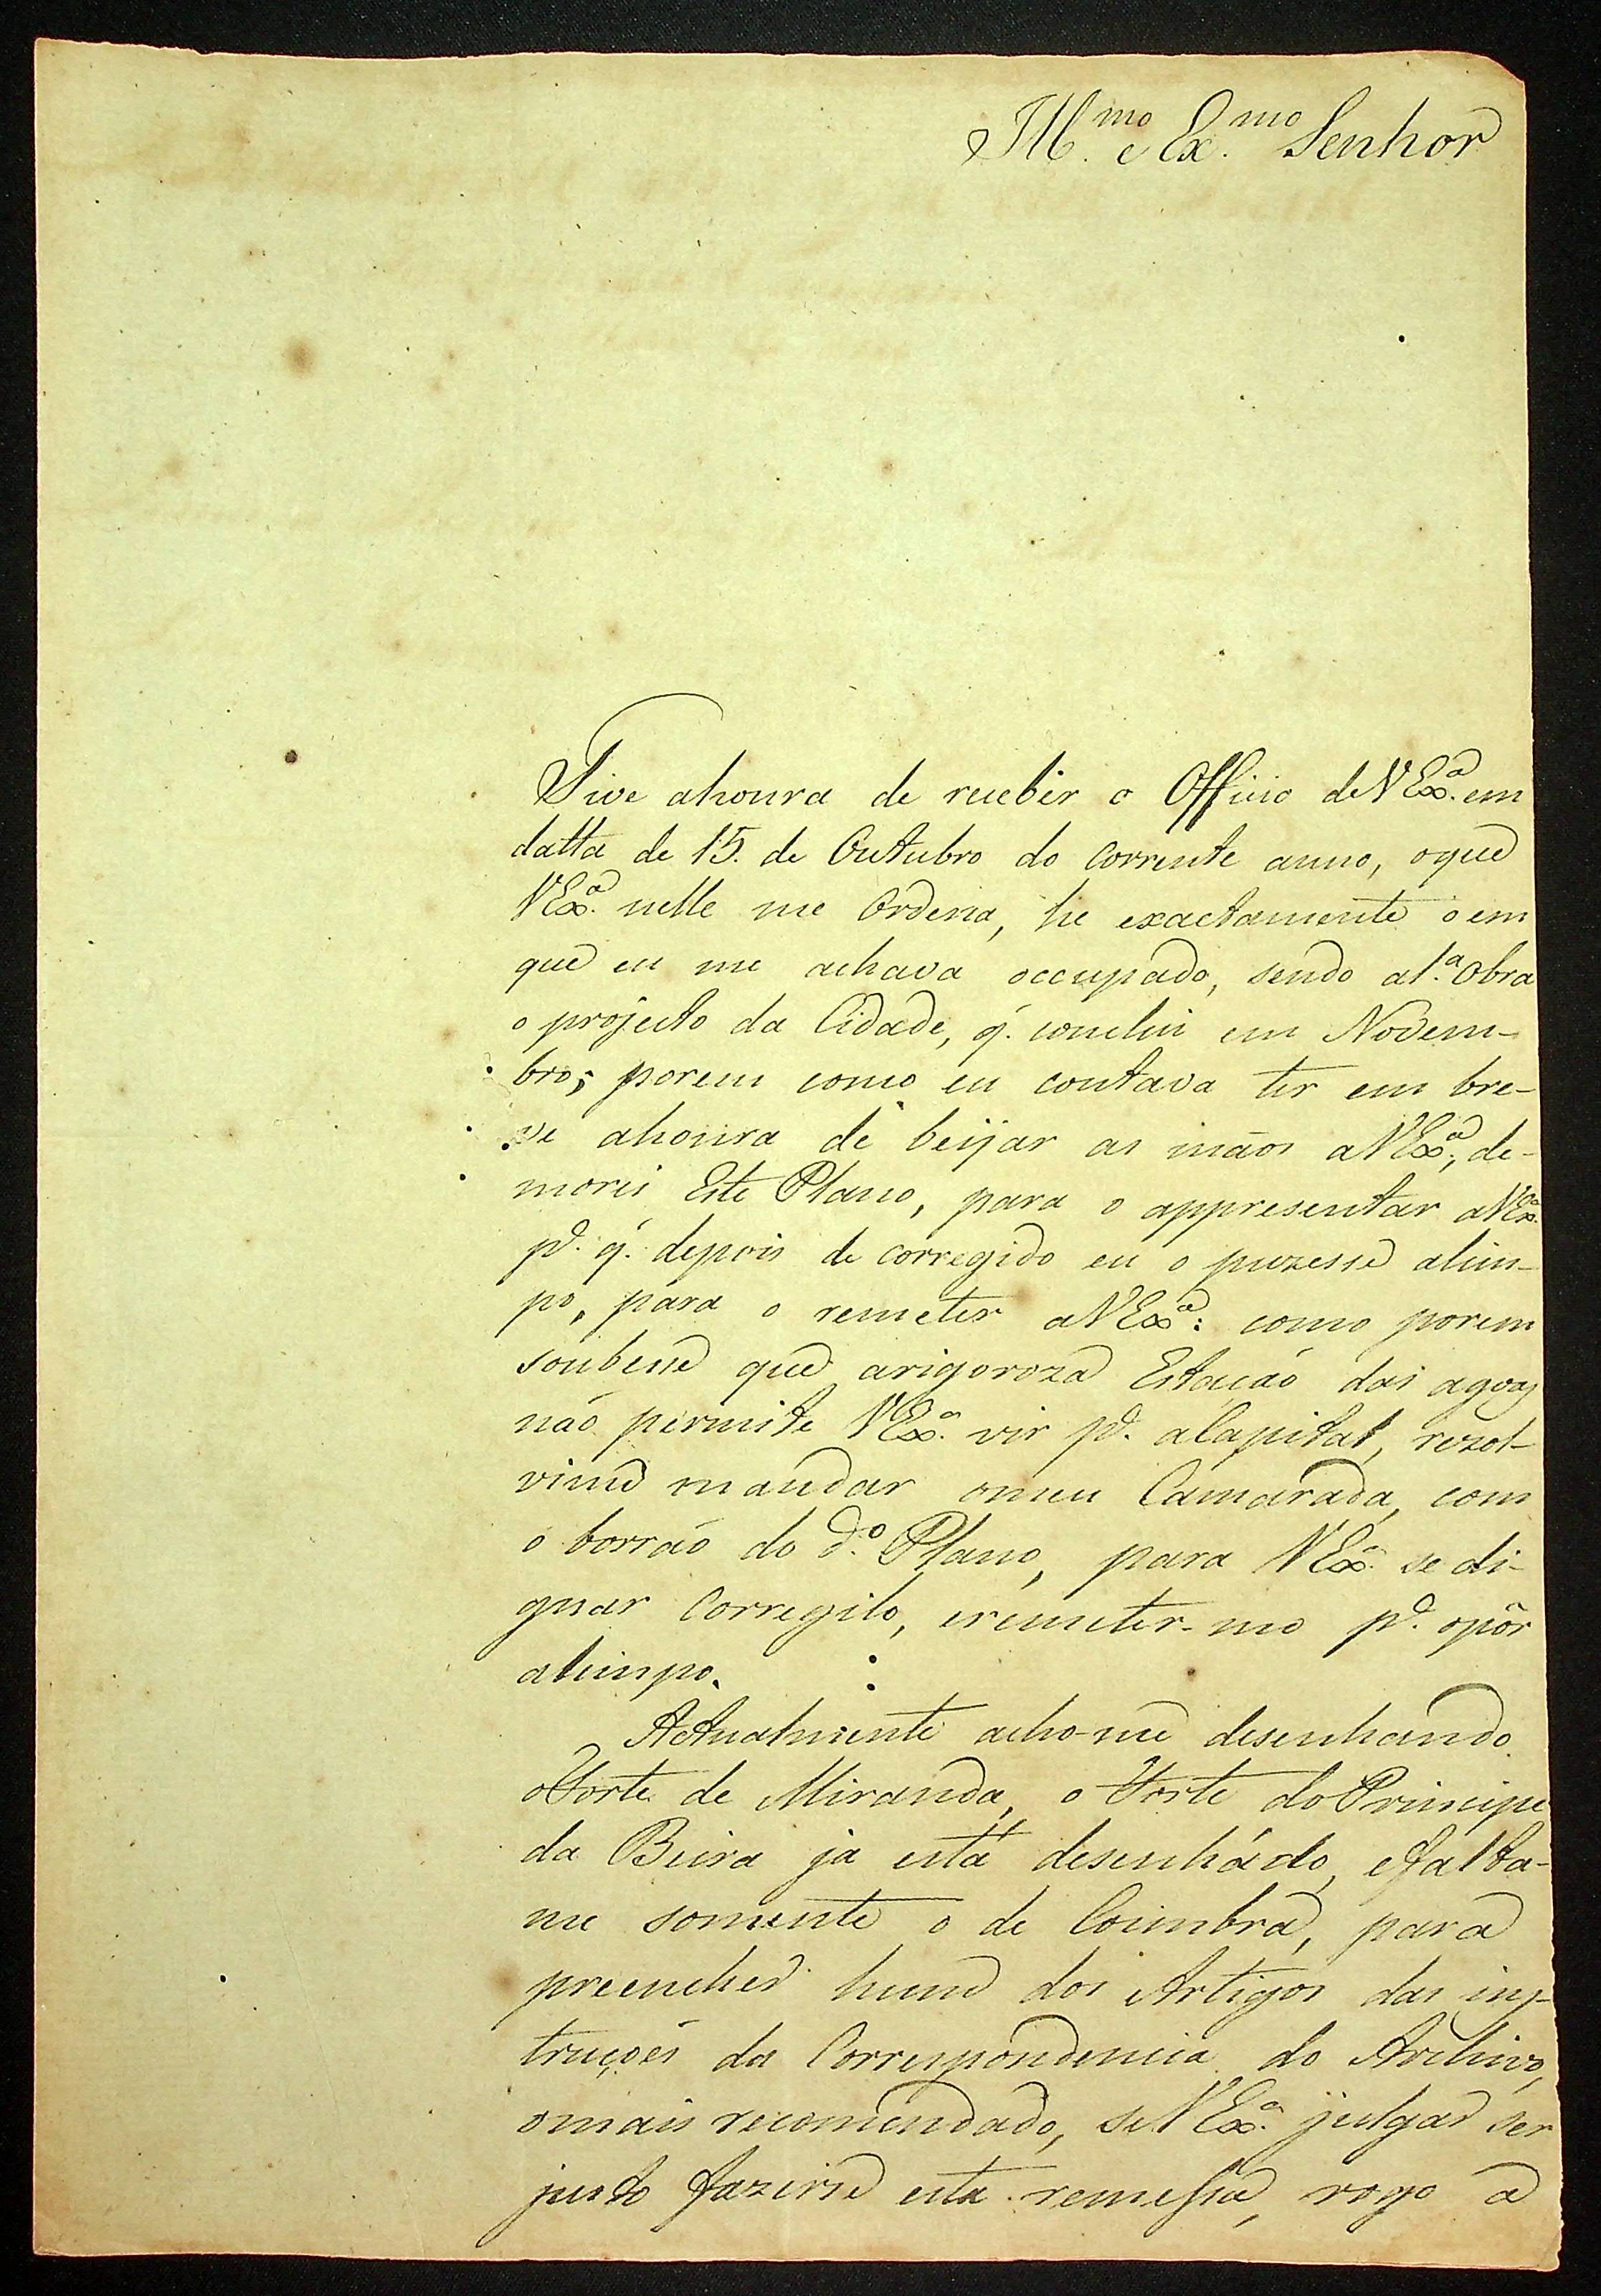 Ill.mo e Ex.mo Senhor
Tive ahonra de receber o Officio de V Ex.a em
datta de 15. de Outubro do corrente anno, oque
V Ex.a nelle me Ordena, he exactamente o em
que eu me achava occupado, sendo al.a Obra
o projecto da Cidade, q. conclui em Novem-
bro; porem como eu contava ter em bre-
ve ahonra de beijar as mãos a V Ex.a, de-
morei Este Plano, para o appresentar a V Ex.a
p.a q. depois de corregido eu o puzesse alim-
po, para o remeter a V Ex.a: como porem
soubesse que arigoroza Estação das agoas
não permite V Ex.a vir p.a a Capital, rezol-
vime mandar omeu Camarada, com
o borrão do d.o Plano, para V Ex.a se di-
gnar Corregilo, eremeter-mo p.a opôr
alimpo.
Actualmente acho-me desenhando
o Forte de Miranda, o Forte do Principe
da Beira já está desenhádo, efalta-
me somente o de Coimbra, para
preencher hum dos Artigos das ins-
truções da Correspondencia do Archivo,
omais recomendado, se V Ex.a julgar ser
justo fazerse esta remessa, rogo a